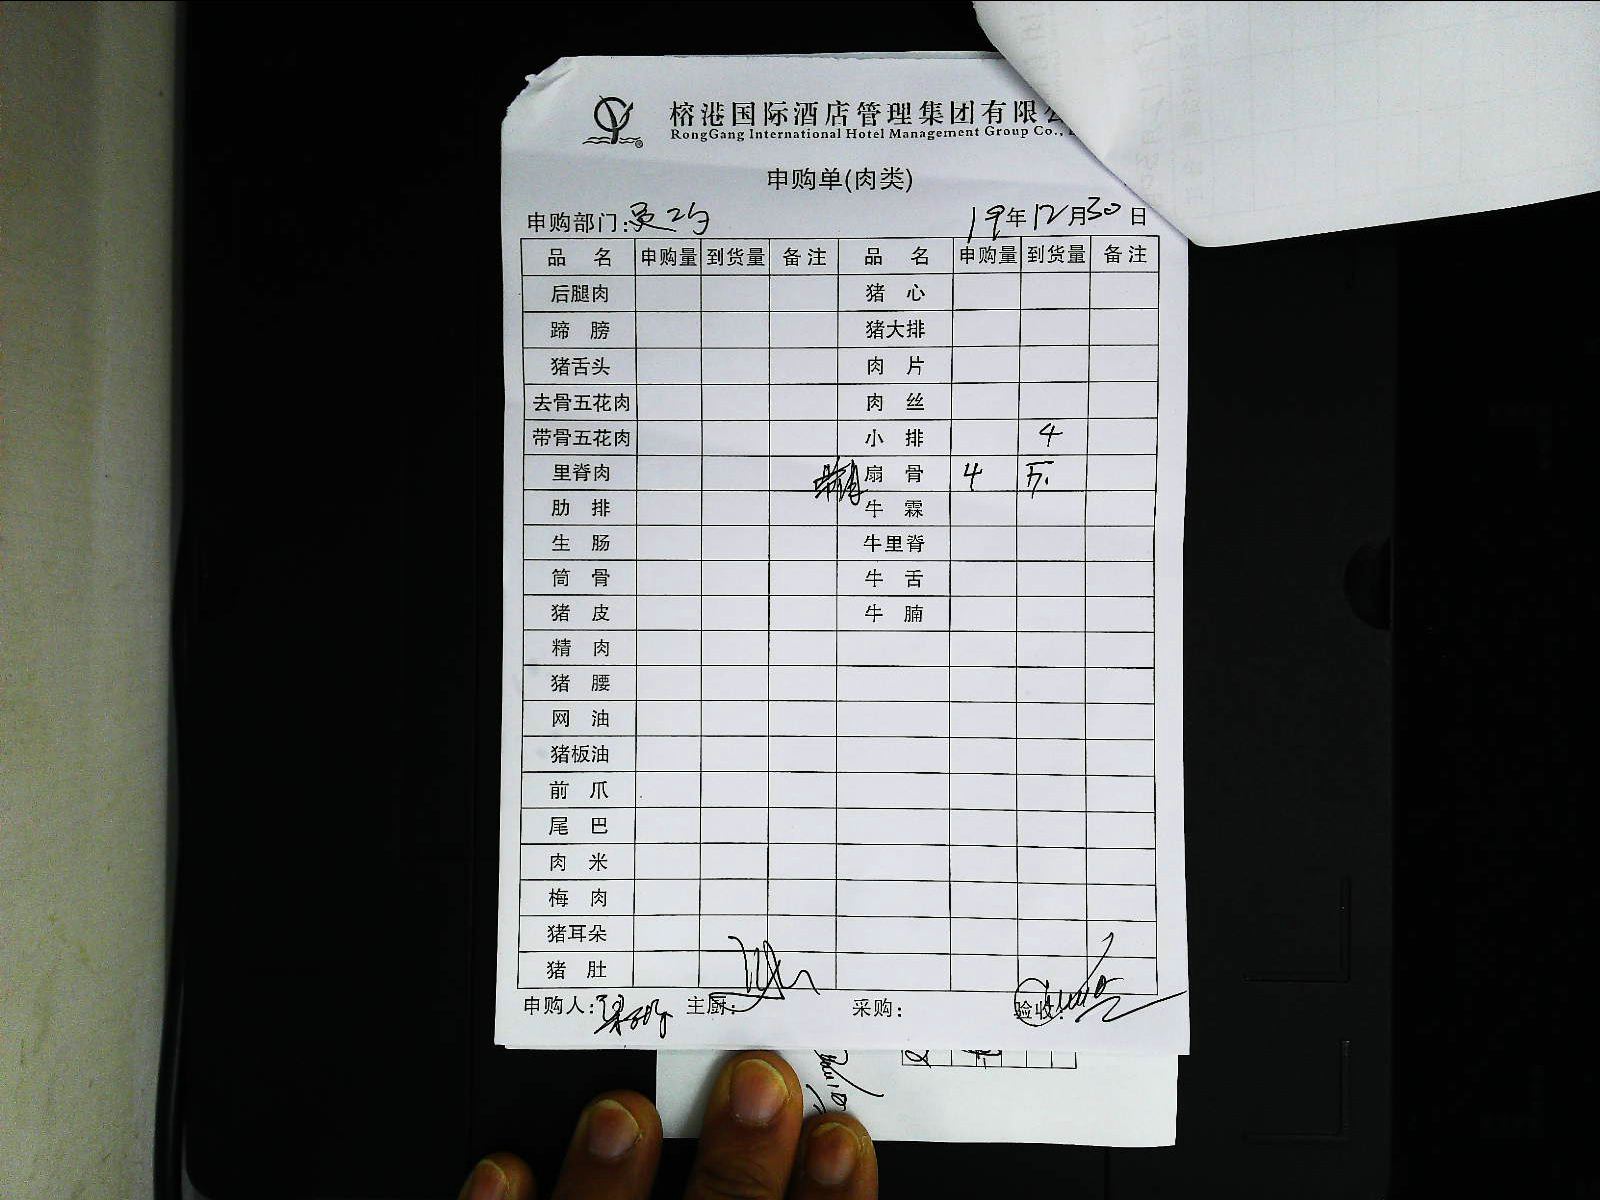 榕港国际酒店管理集团有限
RongGang International Hotel Management Group Co.,
申购单(肉类)
申购部门: 19年12月30日
品 名 申购量 到货量 备注 品 名 申购量 到货量 备注
后腿肉 猪 心
蹄 膀 猪大排
猪舌头 肉 片
去骨五花肉 肉 丝
带骨五花肉 小 排 4
里脊肉 扇 骨 4
肋 排 牛 霖
生 肠 牛里脊
筒 骨 牛 舌
猪 皮 牛 腩
精 肉
猪 腰
网 油
猪板油
前 爪
尾 巴
肉 米
梅 肉
猪耳朵
猪 肚
申购人: 主厨: 采购: 验收: